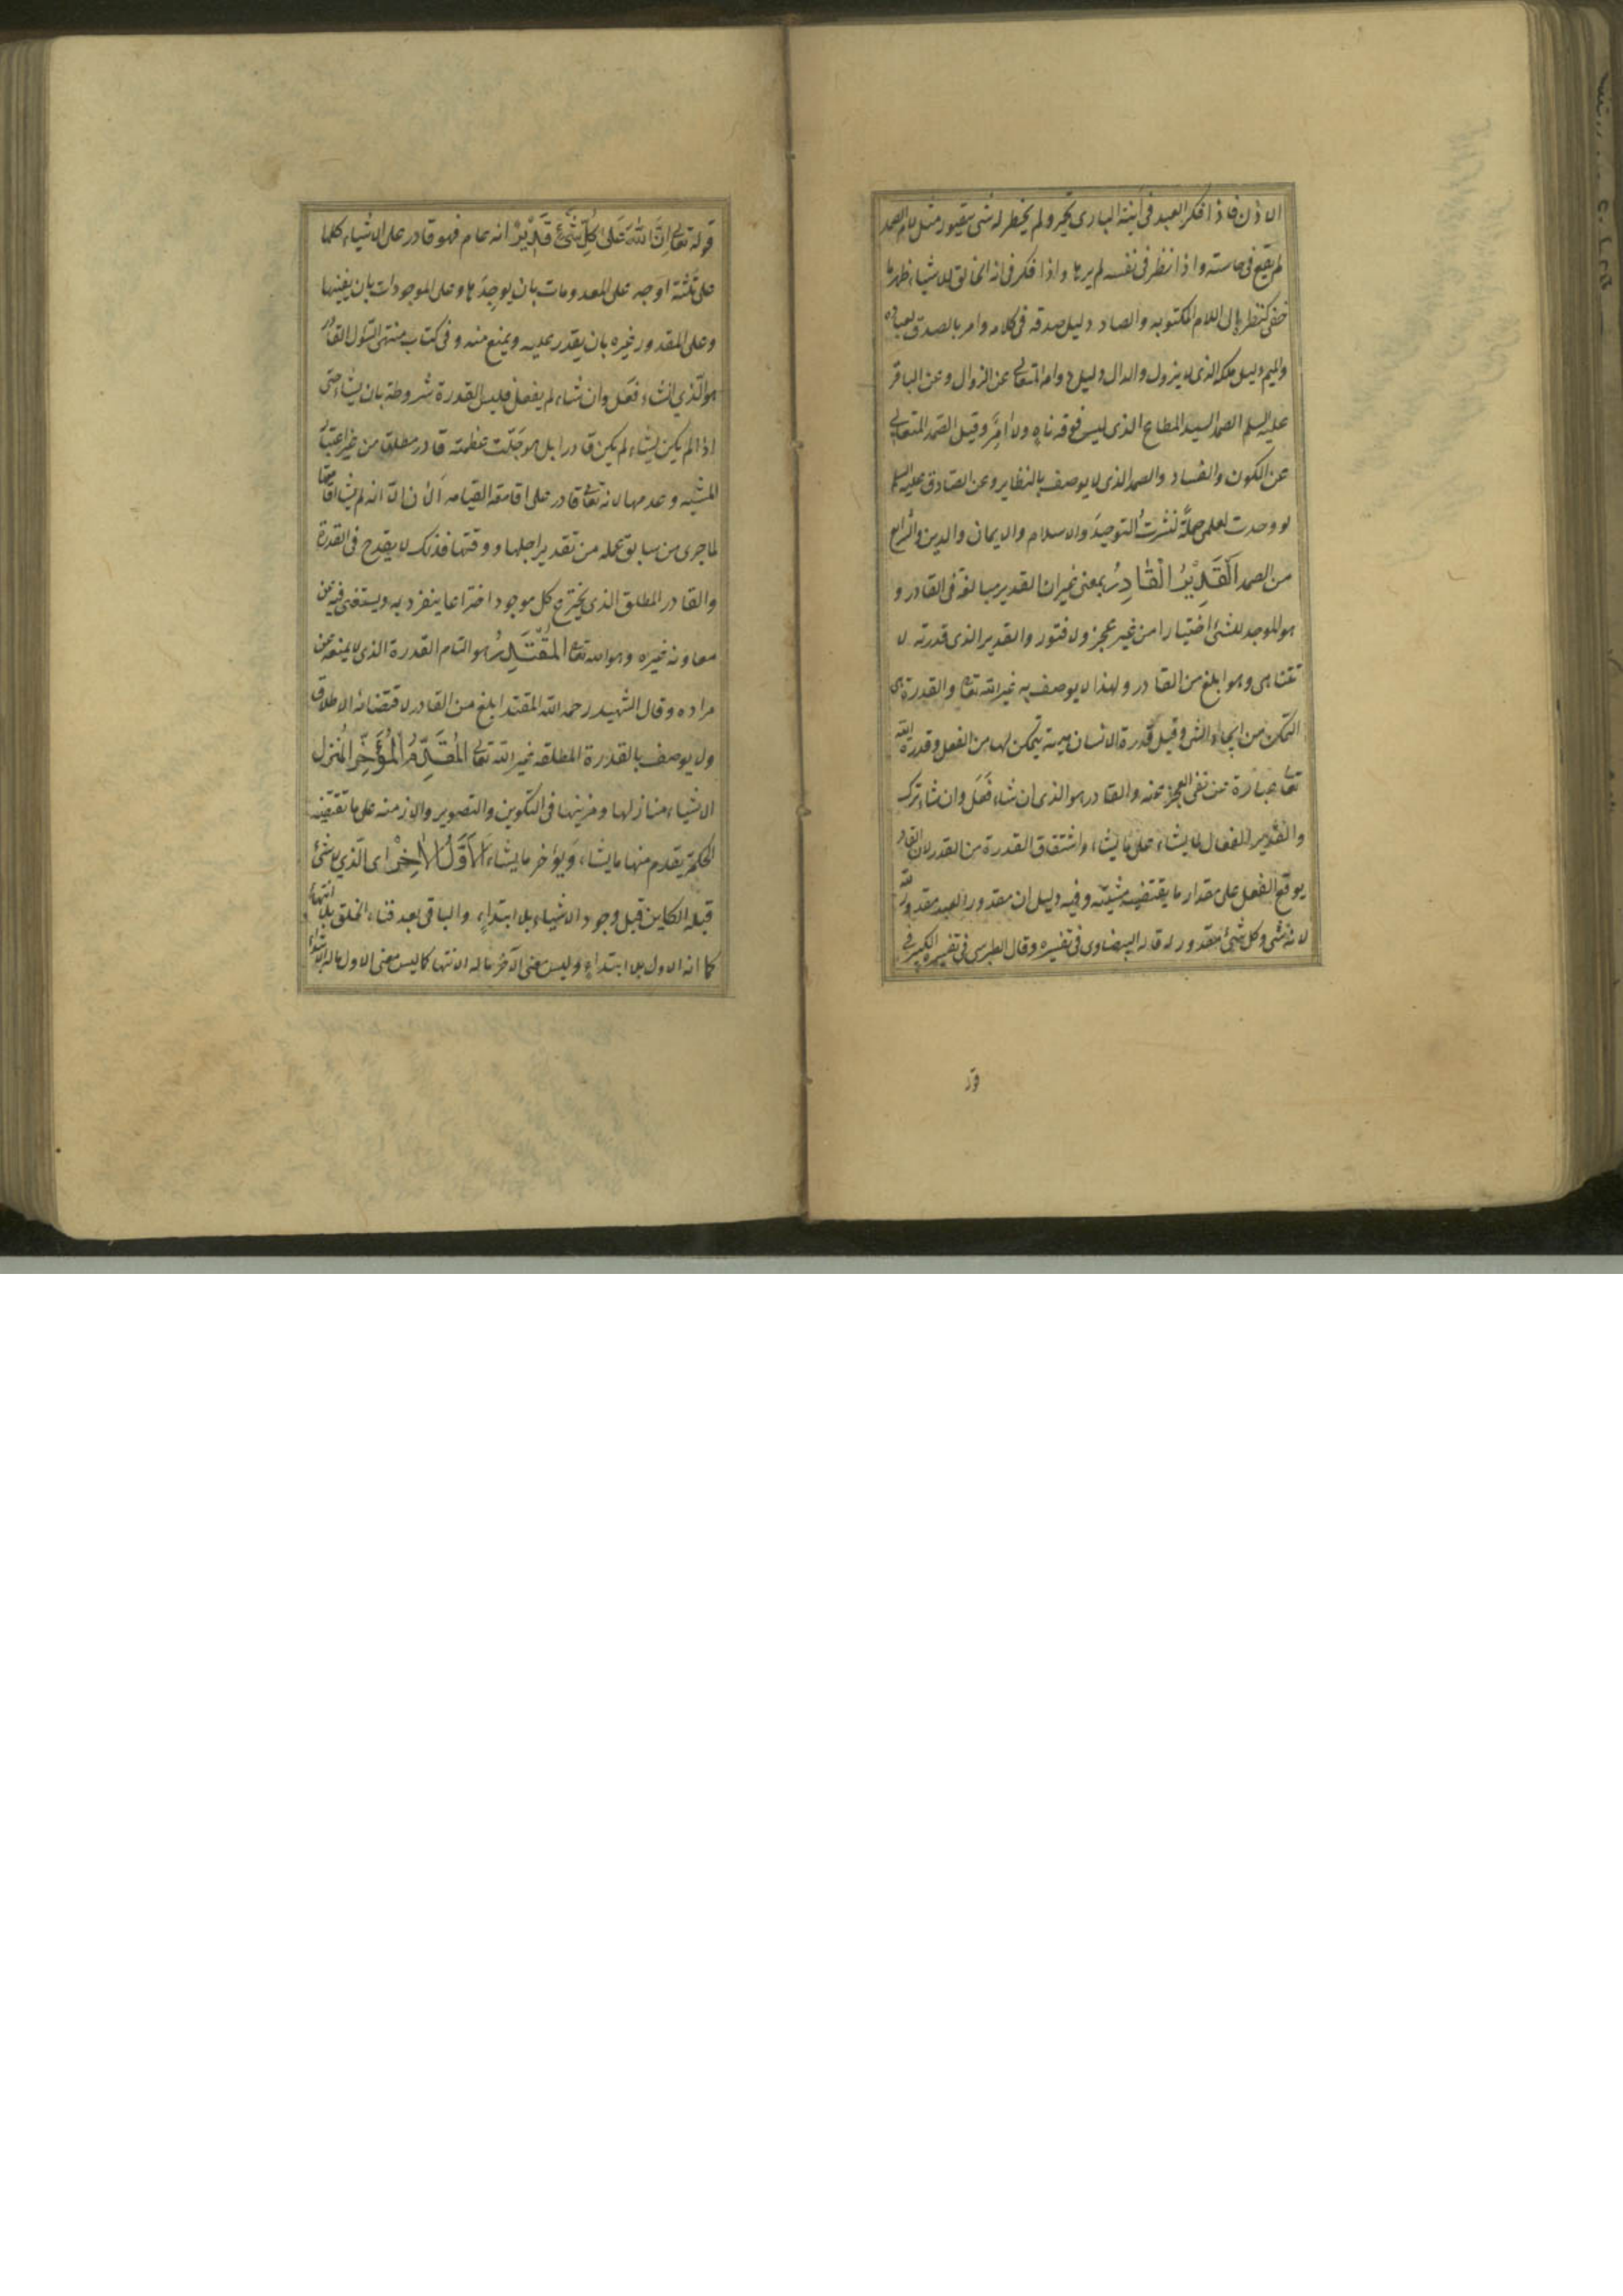 الاذن فاذا فكر العبد في انية الباري تحير ولم يخطر له شئ يتصور مثل لام الصمد
لم يقع في حاسته واذا نظر في نفسه لم يرها واذا فكر في انه الخالق للاشياء ظهر ما
خفي كنظره الى اللام المكتوبه والصاد دليل صدقه في كلامه وامره بالصدق لعباده
والميم دليل ملكه الذي لا يزول والدال دليل دوامه المتعالي عن الزوال وعن الباقر
عليه السلم الصمد السيد المطاع الذي ليس فوقه ناه ولا امر وقيل الصمد المتعالي
عن الكون والفساد والصمد الذي لا يوصف بالنظاير وعن الصادق عليه السلم
لو وجدت لعلمي حملة لنشرت التوحيد والاسلام والايمان والدين والشرايع
من الصمد القدير القادر بمعنى غير ان القدير مبالغة في القادر و
هو الموجد للشئ اختيارا من غير عجز ولا فتور والقدير الذي قدرته لا
تتناهى وهو ابلغ من القادر ولهذا لا يوصف به غير الله تعالى والقدرة هي
التمكن من ايجاد الشئ وقيل قدرة الانسان هيئة يتمكن بها من الفعل وقدرة الله
تعالى عبارة عن نفى العجز عنه والقادر هو الذي ان شاء فعل وان شاء ترك
والقدير الفعال لما يشاء على ما يشاء واشتقاق القدرة من القدر لان القادر
يوقع الفعل على مقدار ما يقتضيه مشيته وفيه دليل ان مقدور العبد مقدور لله
لانه شئ وكل شئ مقدور له قاله البيضاوي في تفسيره وقال الطبرسي في تفسيره الكبير في
قو
قوله تعالى ان الله على كل شئ قدير انه عام فهو قادر على الاشياء كلها
على ثلثة اوجه على المعدومات بان يوجدها وعلى الموجودات بان يفنيها
وعلى المقدور غيره بان يقدر عليه ويمنع منه وفي كتاب منتهى السول القادر
هو الذي ان شاء فعل وان شاء لم يفعل فليس القدرة مشروطة بان يشاء حتى
اذا لم يكن يشاء لم يكن قادرا بل هو جلت عظمته قادر مطلق من غير اعتبار
المشيه وعدمها لانه تعالى قادر على اقامة القيامه الان الا انه لم يشا اقامتها
لما جرى من سابق علمه من تقدير اجلها ووقتها فذلك لا يقدح في القدرة
والقادر المطلق الذي يخترع كل موجود اختراعا ينفرد به ويستغنى فيه عن
معاونه غيره وهو الله تعالى المقتدر هو التام القدرة الذي لا يمتنع عن
مراده وقال الشهيد رحمه الله المقتدر ابلغ من القادر لاقتضائه الاطلاق
ولا يوصف بالقدرة المطلقه غير الله تعالى المقدم المؤخر المنزل
الاشياء منازلها ومرتبها في التكوين والتصوير والازمنه على ما تقتضيه
الحكمة يقدم منها ما يشاء ويؤخر ما يشاء الاول الاخر اى الذي لا شئ
قبله الكاين قبل وجود الاشياء بلا ابتداء والباقي بعد فناء الخلق بلا انتهاء
كما انه الاول بلا ابتداء وليس معنى الآخر ما له الانتها كما ليس معنى الاول ما له ابتداء